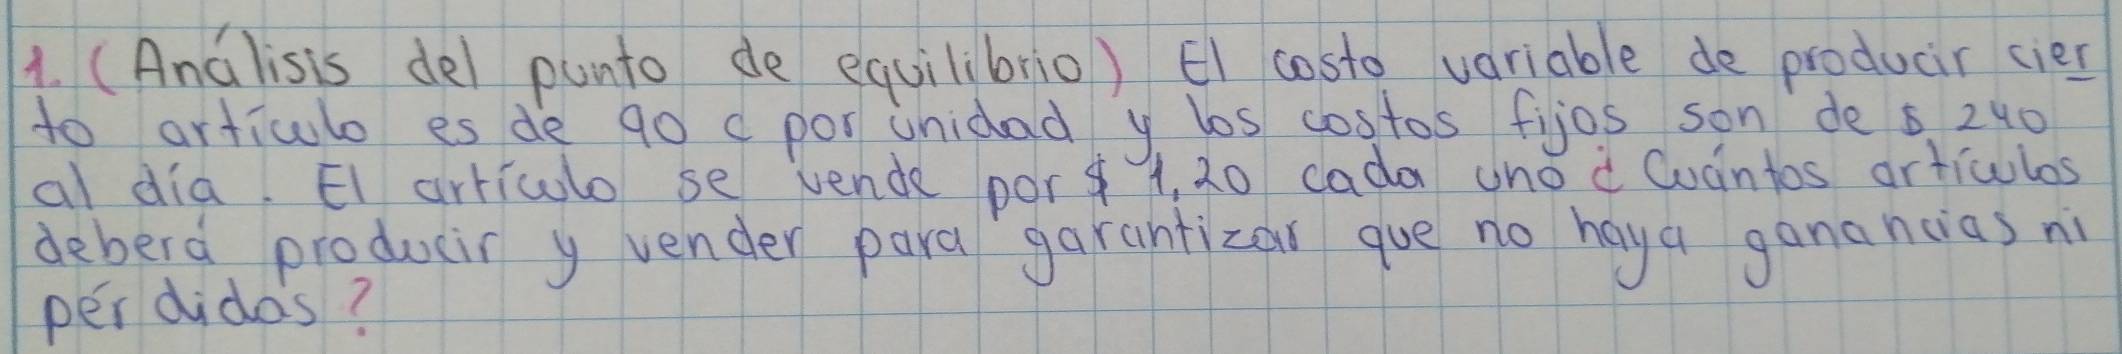 1. (Análisis del punto de equilibrio) El costo variable de producir cier
to artículo es de 90 ¢ por unidad y los costos fijos son de $ 240
al día. El artículo se vende por $ 1,20 cada uno ¿ Cuántos artículos
deberá producir y vender para garantizar que no haya ganancias ni
pérdidas?